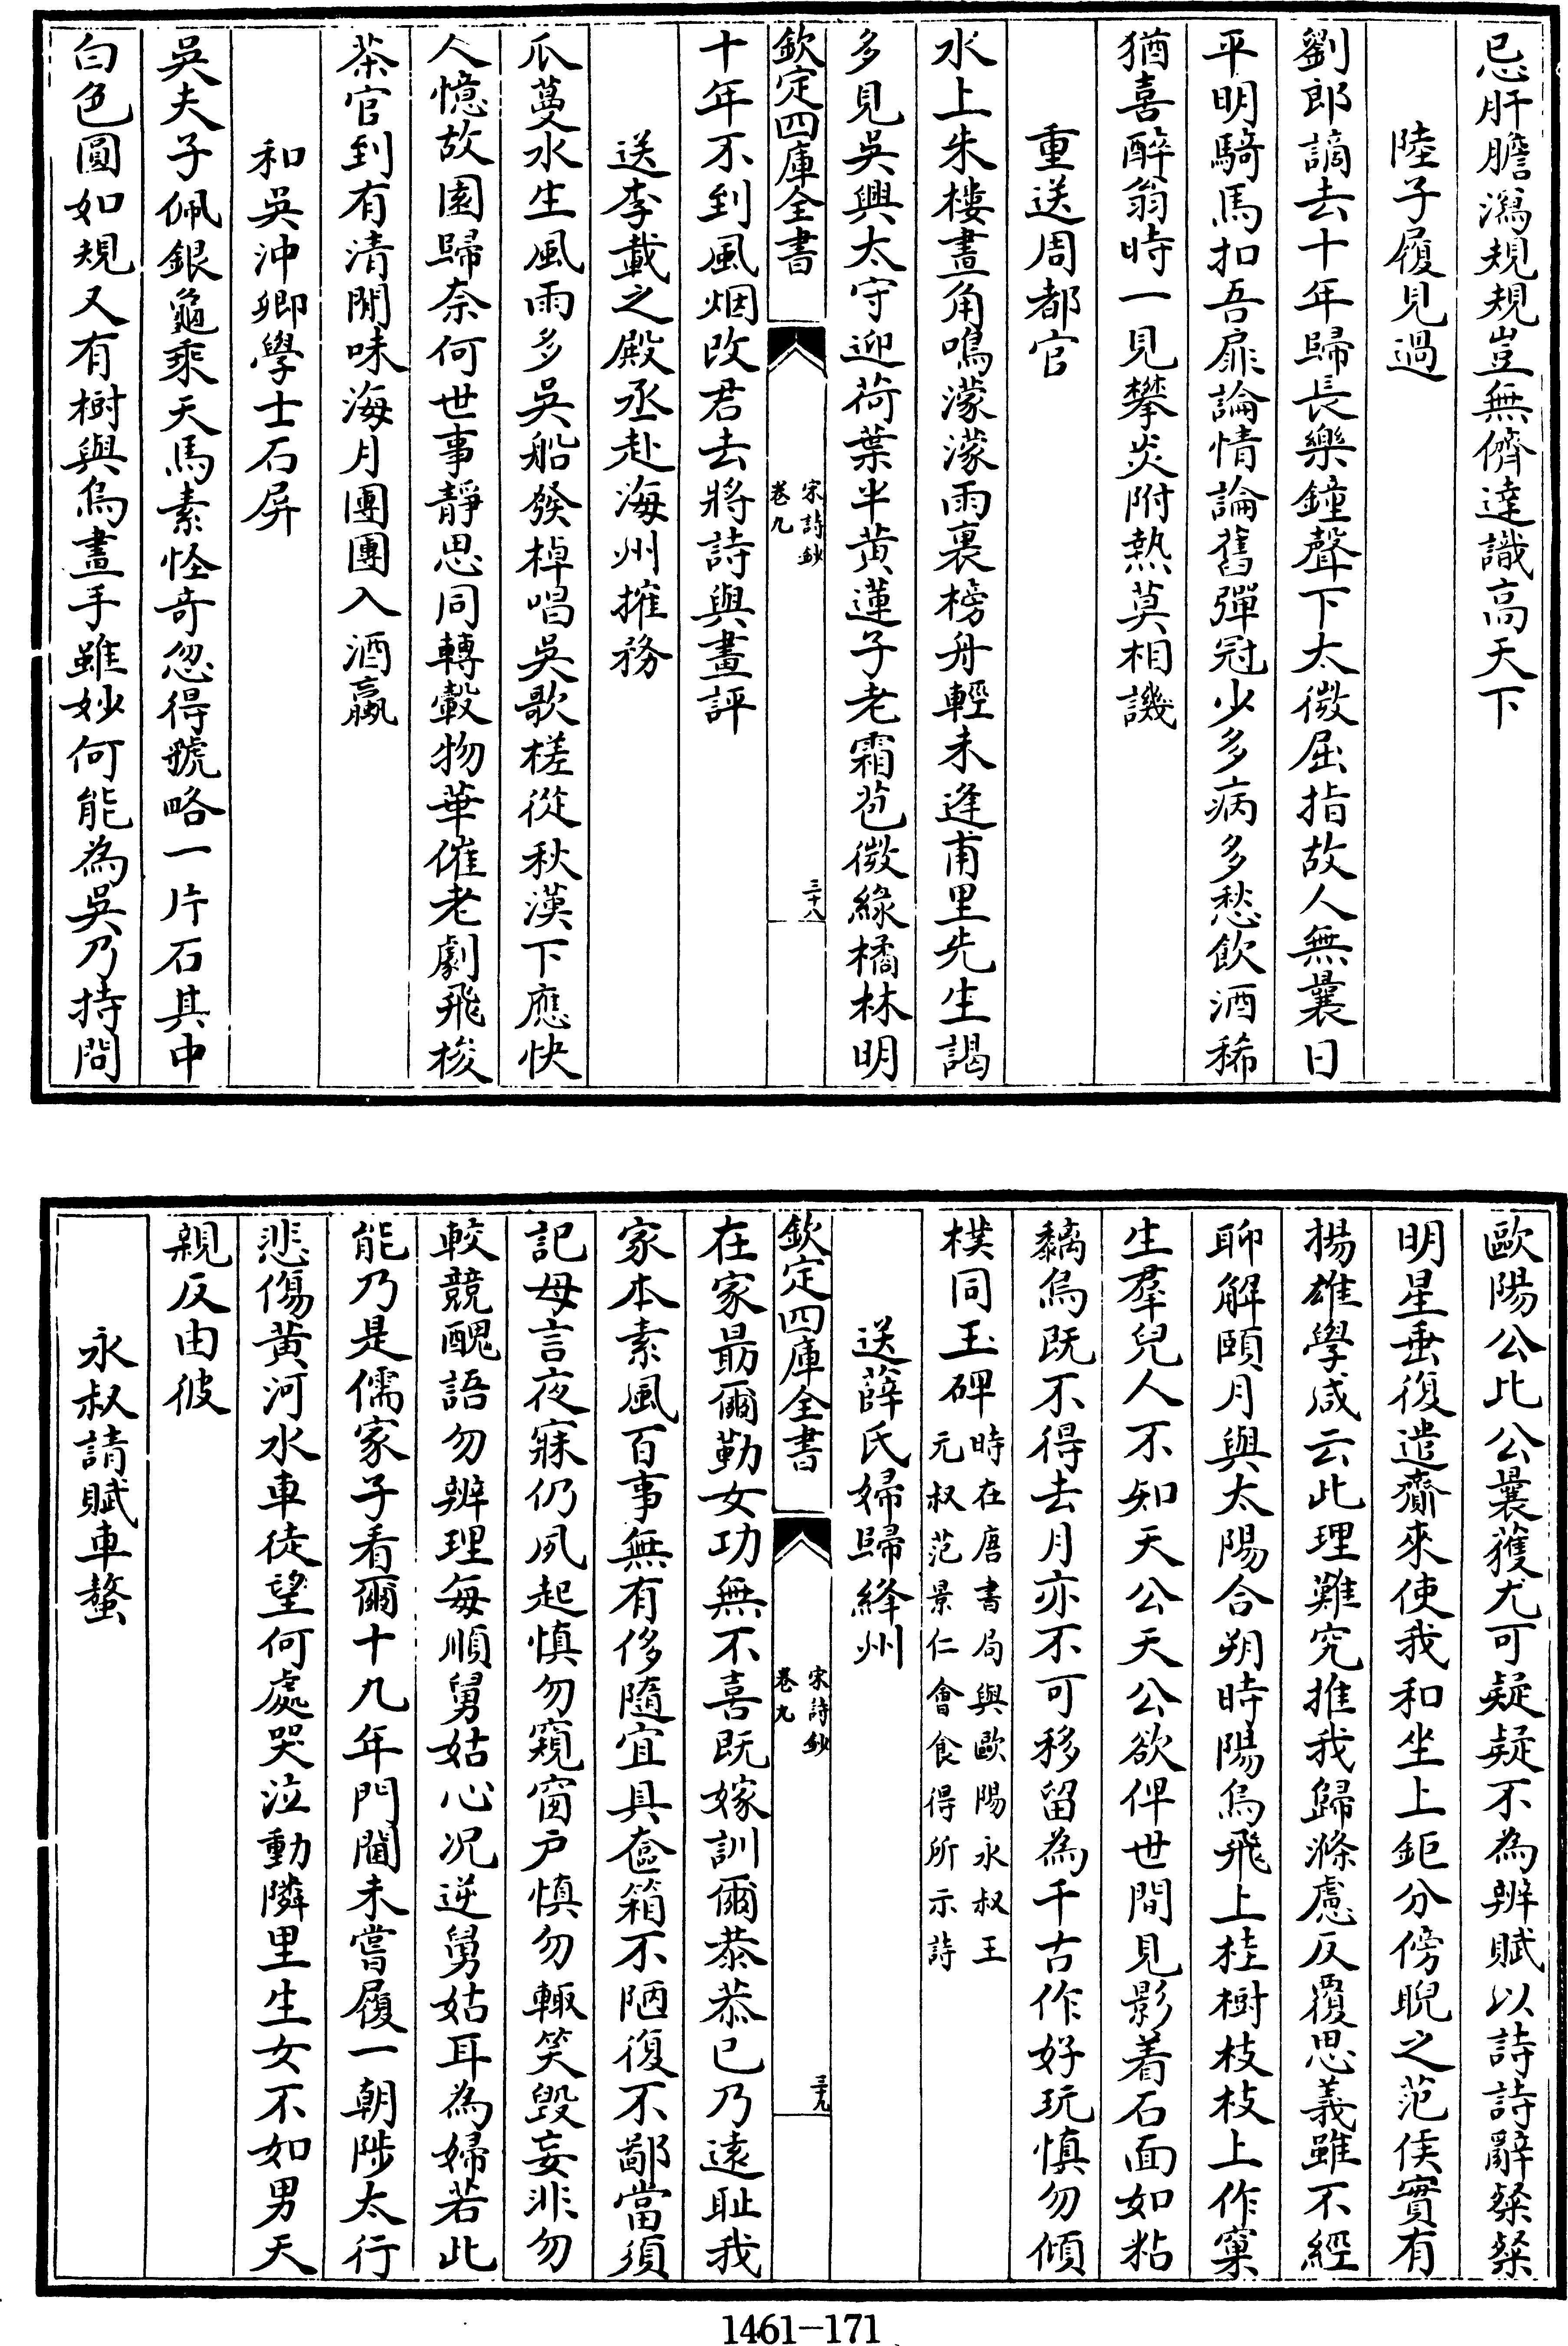 忌肝膽瀉規規豈無儕達識高天下
陸子履見過
劉郎謫去十年歸長樂鐘聲下太微屈指故人無曩日
平明騎馬扣吾扉論情論舊彈冠少多病多愁飲酒稀
猶喜醉翁時一見攀炎附熱莫相譏
重送周都官
水上朱樓畫角鳴濛濛雨裏榜舟輕未逢甫里先生謁
多見吳興太守迎荷葉半黄蓮子老霜苞微緑橘林明
欽定四庫全書
宋詩鈔
卷九
三十八
十年不到風烟改君去將詩與畫評
送李載之殿丞赴海州搉務
瓜蔓水生風雨多吳船發棹唱吳歌槎從秋漢下應快
人憶故園歸奈何世事靜思同轉轂物華催老劇飛梭
茶官到有清閒味海月團團入酒蠃
和吳沖卿學士石屏
吳夫子佩銀龜乘天馬素怪奇忽得虢略一片石其中
白色圓如規又有樹與烏畫手雖妙何能為吳乃持問
歐陽公比公曩獲尤可疑疑不為辨賦以詩詩辭粲粲
明星垂復遣齎來使我和坐上鉅分傍睨之范侯實有
揚雄學咸云此理難究推我歸滌慮反覆思義雖不經
聊解頤月與太陽合朔時陽烏飛上桂樹枝枝上作窠
生羣兒人不知天公天公欲俾世間見影着石面如粘
黐烏既不得去月亦不可移留為千古作好玩慎勿傾
樸同玉碑時在唐書局與歐陽永叔王
元叔范景仁會食得所示詩
送薛氏婦歸絳州
欽定四庫全書
宋詩鈔
卷九
三十九
在家最爾勤女功無不喜既嫁訓爾恭恭已乃遠耻我
家本素風百事無有侈隨宜具奩箱不陋復不鄙當須
記母言夜寐仍夙起慎勿窺窗户慎勿輙笑毁妄非勿
較競醜語勿辨理每順舅姑心况逆舅姑耳為婦若此
能乃是儒家子看爾十九年門閫未嘗履一朝陟太行
悲傷黄河水車徒望何處哭泣動隣里生女不如男天
親反由彼
永叔請賦車螯
1461-171